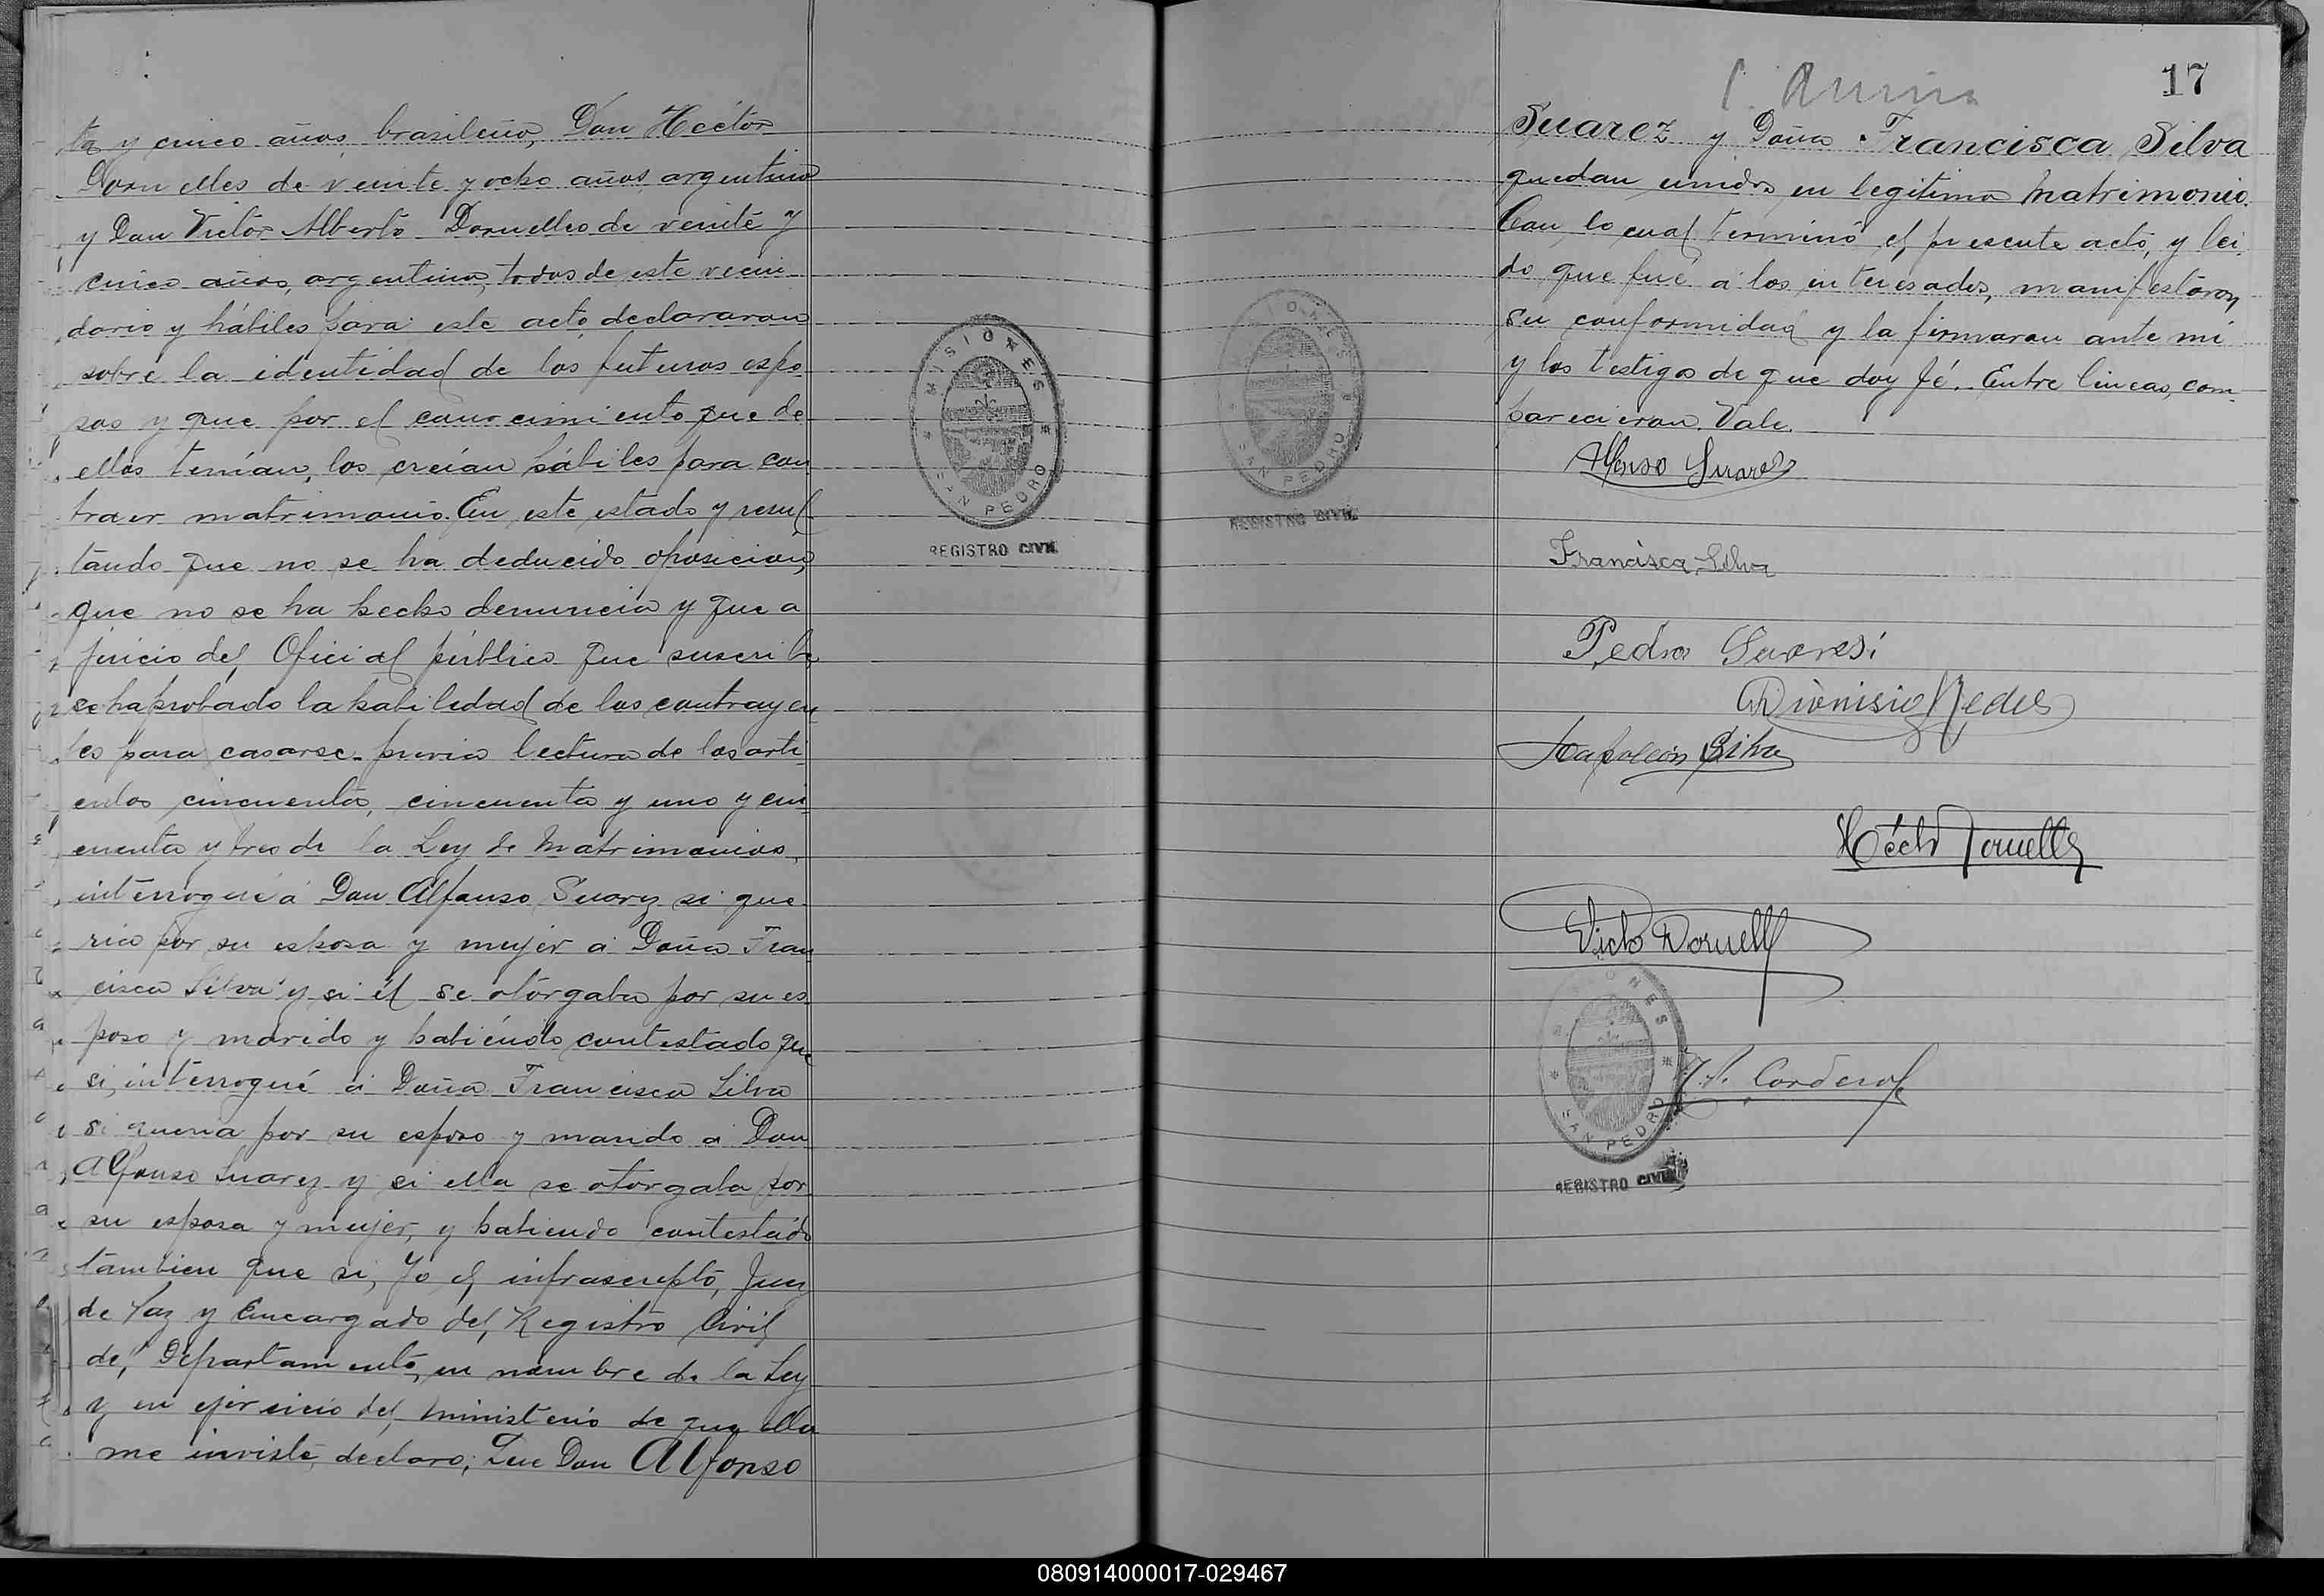 ta y cinco años, brasileño, Don Hector
Dornelles de veinte y ocho años argentino
y Don Victor Alberto Dornelles de veinte y
cinco años, argentino, todos de este vecin
dario y hábiles para este acto, declararon
sobre la identidad de los futuros espo
sos y que por el conocimiento que de
ellos tenían, los creían hábiles para con
traer matrimonio. En este estado y resul
tando que no se ha deducido oposicion,
que no se ha hecho denuncia y que a
juicio del Oficial público que suscribe
se ha probado la habilidad de los contrayen
tes para casarse previa lectura de los arti
culos cincuenta, cincuenta y uno y cin
cuenta y tres de la Ley de Matrimonios,
interrogué á Don Alfonso Suarez si que
ria por su esposa y mujer á Doña Fran
cisca Silva y si él se otorgaba por su es
poso y marido y habiéndo contestado que
si, interrogué á Doña Francisca Silva
si queria por su esposo y marido a Don
Alfonso Suarez y si ella se otorgaba por
su esposa y mujer, y habiendo contestado
tambien que si, Yo el infrascripto, Juez
de Paz y Encargado del Registro Civil
del Departamento, en nombre de la Ley
y en ejercicio del ministerio de que ella
me inviste, declaro; Que Don Alfonso
MISIONES
SAN PEDRO
REGISTRO CIVIL
MISIONES
SAN PEDRO
REGISTRO CIVIL
17
Suarez y Doña Francisca Silva
quedan unidos en legitimo Matrimonio.
Con lo cual terminó el presente acto, y lei
do que fué á los interesados, manifestaron
su conformidad y la firmaron ante mi
y los testigos de que doy fé. Entre lineas, com
parecieron. Vale.
Alfonso Suarez
Francisca Silva
Pedro Suares
Dionisio
Napoleón Silva
Héctor Dornelles
Victor Dornelles
MISIONES
SAN PEDRO
REGISTRO CIVIL
Cordero
080914000017-029467